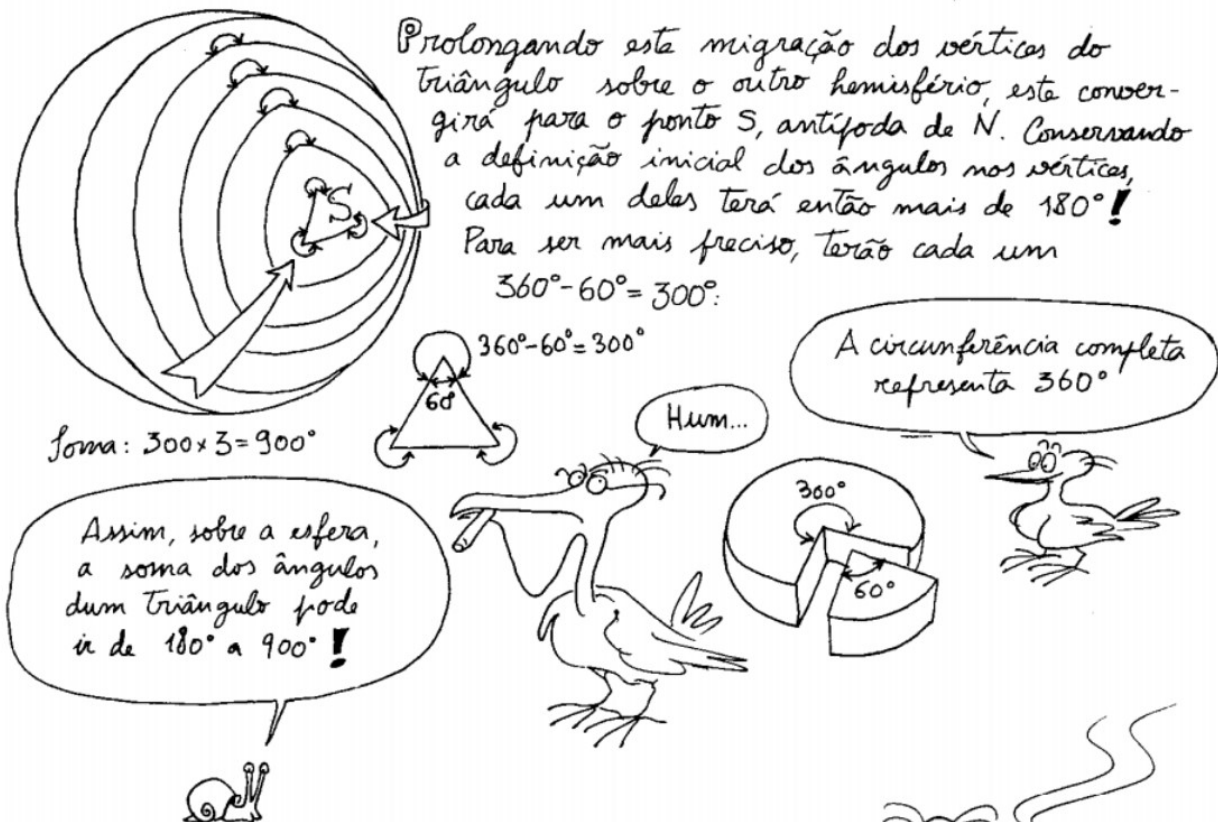 Prolongando esta migração dos vértices do
triângulo sobre o outro hemisfério, este conver-
girá para o ponto S, antípoda de N. Conservando
a definição inicial dos ângulos nos vértices,
cada um deles terá então mais de 180°!
Para ser mais preciso, terão cada um
360°-60°=300°:
S
Soma: 300×3=900°
360°-60°=300°
60°
Hum...
A circunferência completa
representa 360°
300°
60°
Assim, sobre a esfera,
a soma dos ângulos
dum triângulo pode
ir de 180° a 900°!